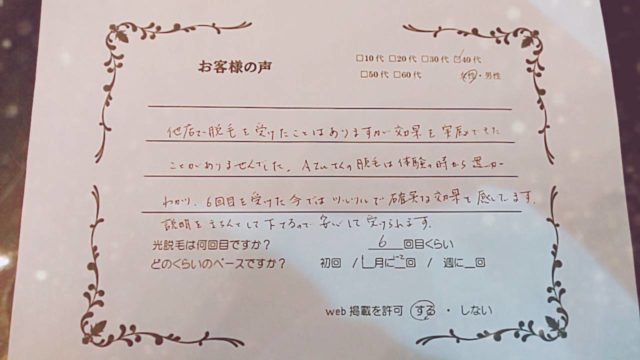 お客様の声
□10代 □20代 □30代 ☑40代
□50代 □60代 女性・男性
他店で脱毛を受けたことはありますが効果を実感できた
ことがありませんでした。 の脱毛は体験の時から違いが
わかり、6回目を受けた今ではツルツルで確実な効果を感じています。
説明をきちんとして下さるので安心して受けられます。
光脱毛は何回目ですか? 6 回目くらい
どのくらいのペースですか? 初回 / 月に 回 / 週に 回
web掲載を許可 する ・ しない